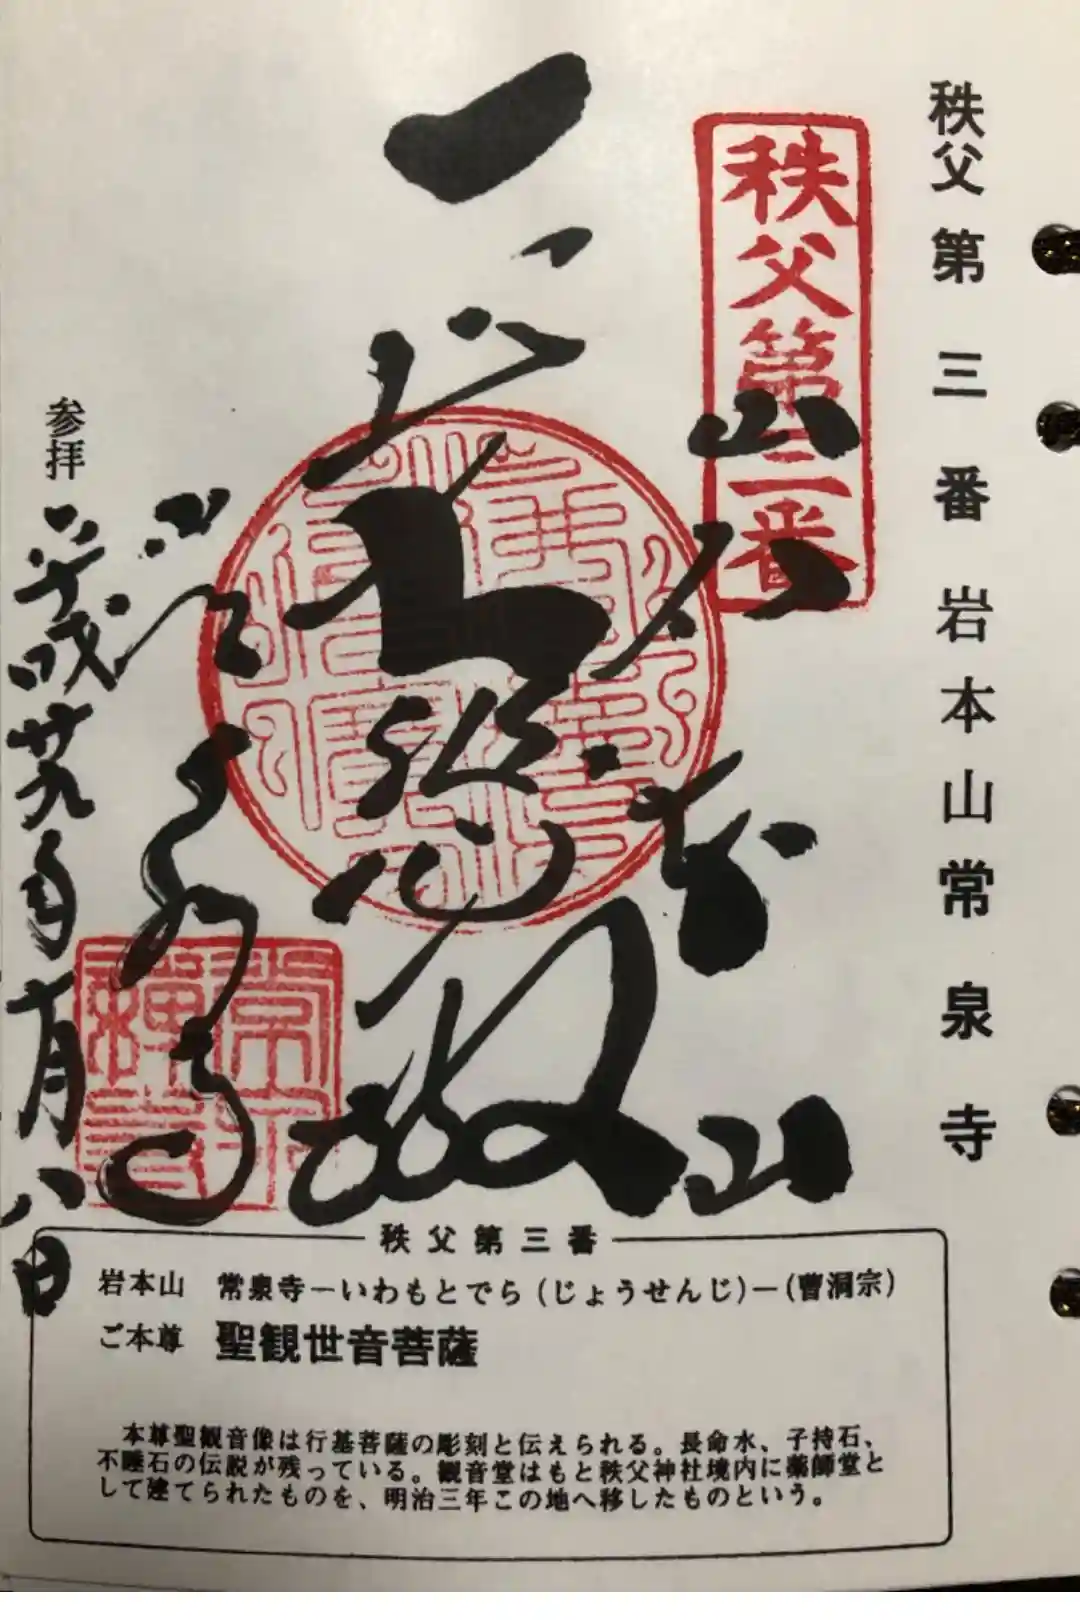 秩父第三番 岩本山常泉寺
秩父第三番
岩本山
大悲殿
常泉寺
参拝 平成廿九年十一月八日
秩父第三番
岩本山 常泉寺ーいわもとでら(じょうせんじ)ー(曹洞宗)
ご本尊 聖観世音菩薩
本尊聖観音像は行基菩薩の彫刻と伝えられる。長命水、子持石、
不睡石の伝説が残っている。観音堂はもと秩父神社境内に薬師堂と
して建てられたものを、明治三年この地へ移したものという。